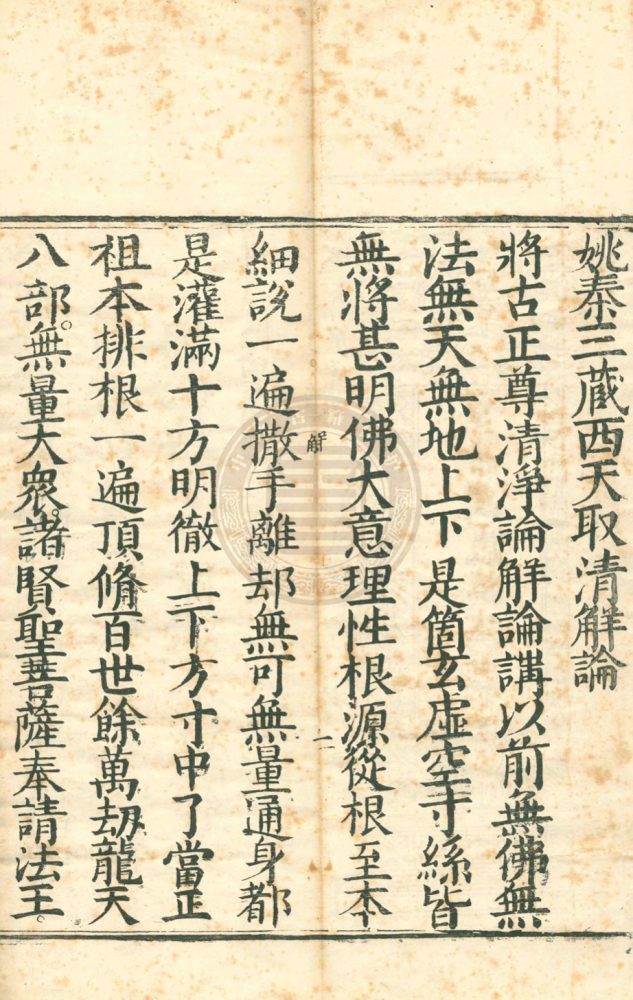 姚秦三藏西天取清解論
將古正尊清淨論解論講以前無佛無
法無天無地上下是箇玄虛空寸絲皆
無將甚明佛大意理性根源從根至本
解
二
細說一遍撒手離却無可無量通身都
是灌滿十方明徹上下方寸中了當正
祖本排根一遍頂脩百世餘萬刼龍天
八部。無量大衆。諸賢聖菩薩奉請法王。